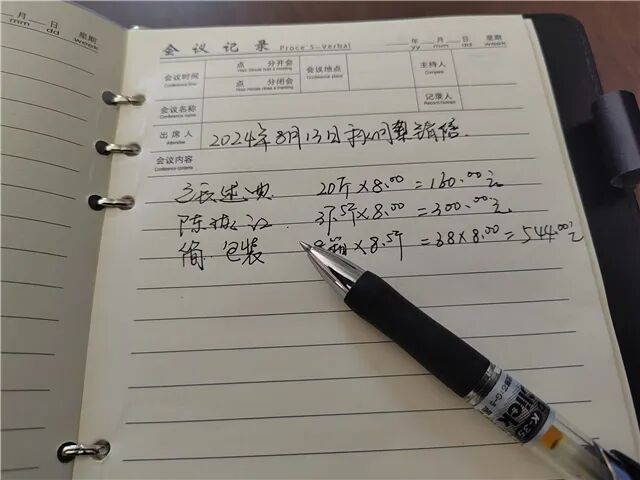 月 日 星期
mm dd week
会议记录 Proce's-Verbal 年 月 日 星期
yy mm dd week
会议时间 点 分开会 会议地点 主持人
Conference time Hour Minute hold a meeting Conference place Compere
点 分闭会
Hour Minute close a meeting
会议名称 记录人
Conference name Record human
出席人 2024年8月13日
Attendee
会议内容
Conference contents
20斤×8.00=160.00元
陈 37.5斤×8.00=300.00元
简包装 8箱×8.5斤=68×8.00=544.00元
K-35